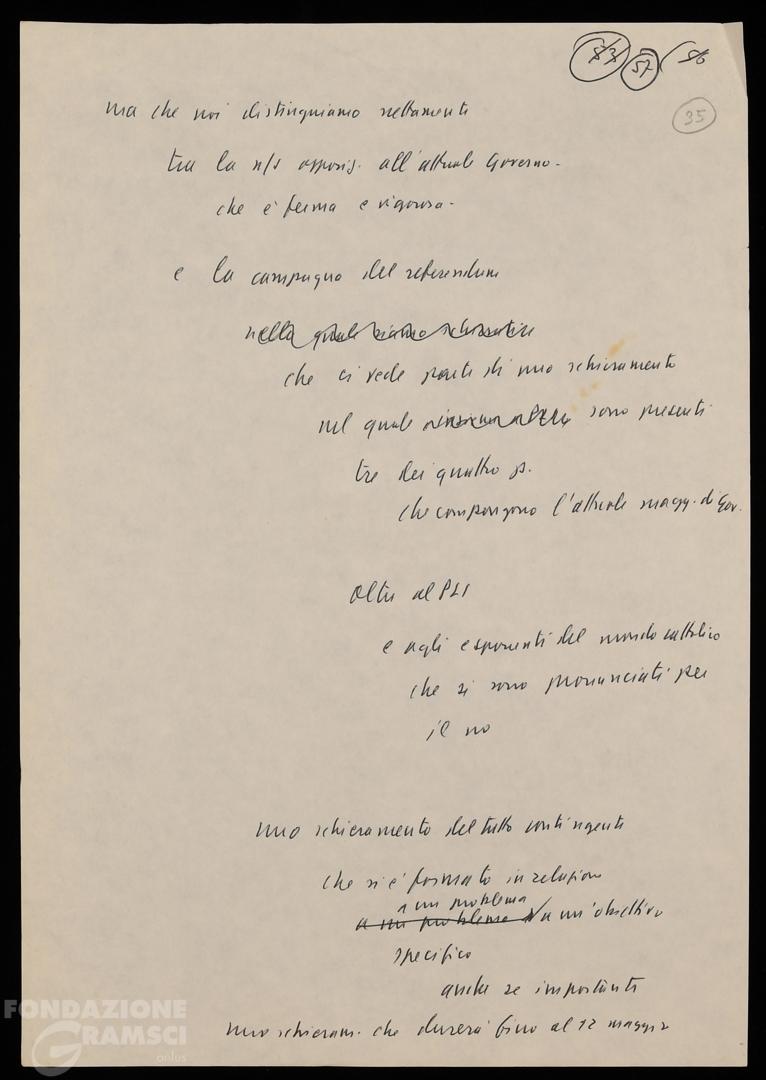 57 56
35
ma che noi distinguiamo nettamente
tra la n/s opposiz. all'attuale Governo -
che è ferma e vigorosa -
e la campagna del referendum
nella quale siamo
che ci vede parte di uno schieramento
nel quale sono presenti
tre dei quattro p.
che compongono l'attuale magg. di Gov.
Oltre al PLI
e agli esponenti del mondo cattolico
che si sono pronunciati per
il no
uno schieramento del tutto contingente
che si è formato in relazione
a un problema
a un problema a un'obiettivo
specifico
anche se importante
uno schieram. che durerà fino al 12 maggio
FONDAZIONE
GRAMSCI
onlus